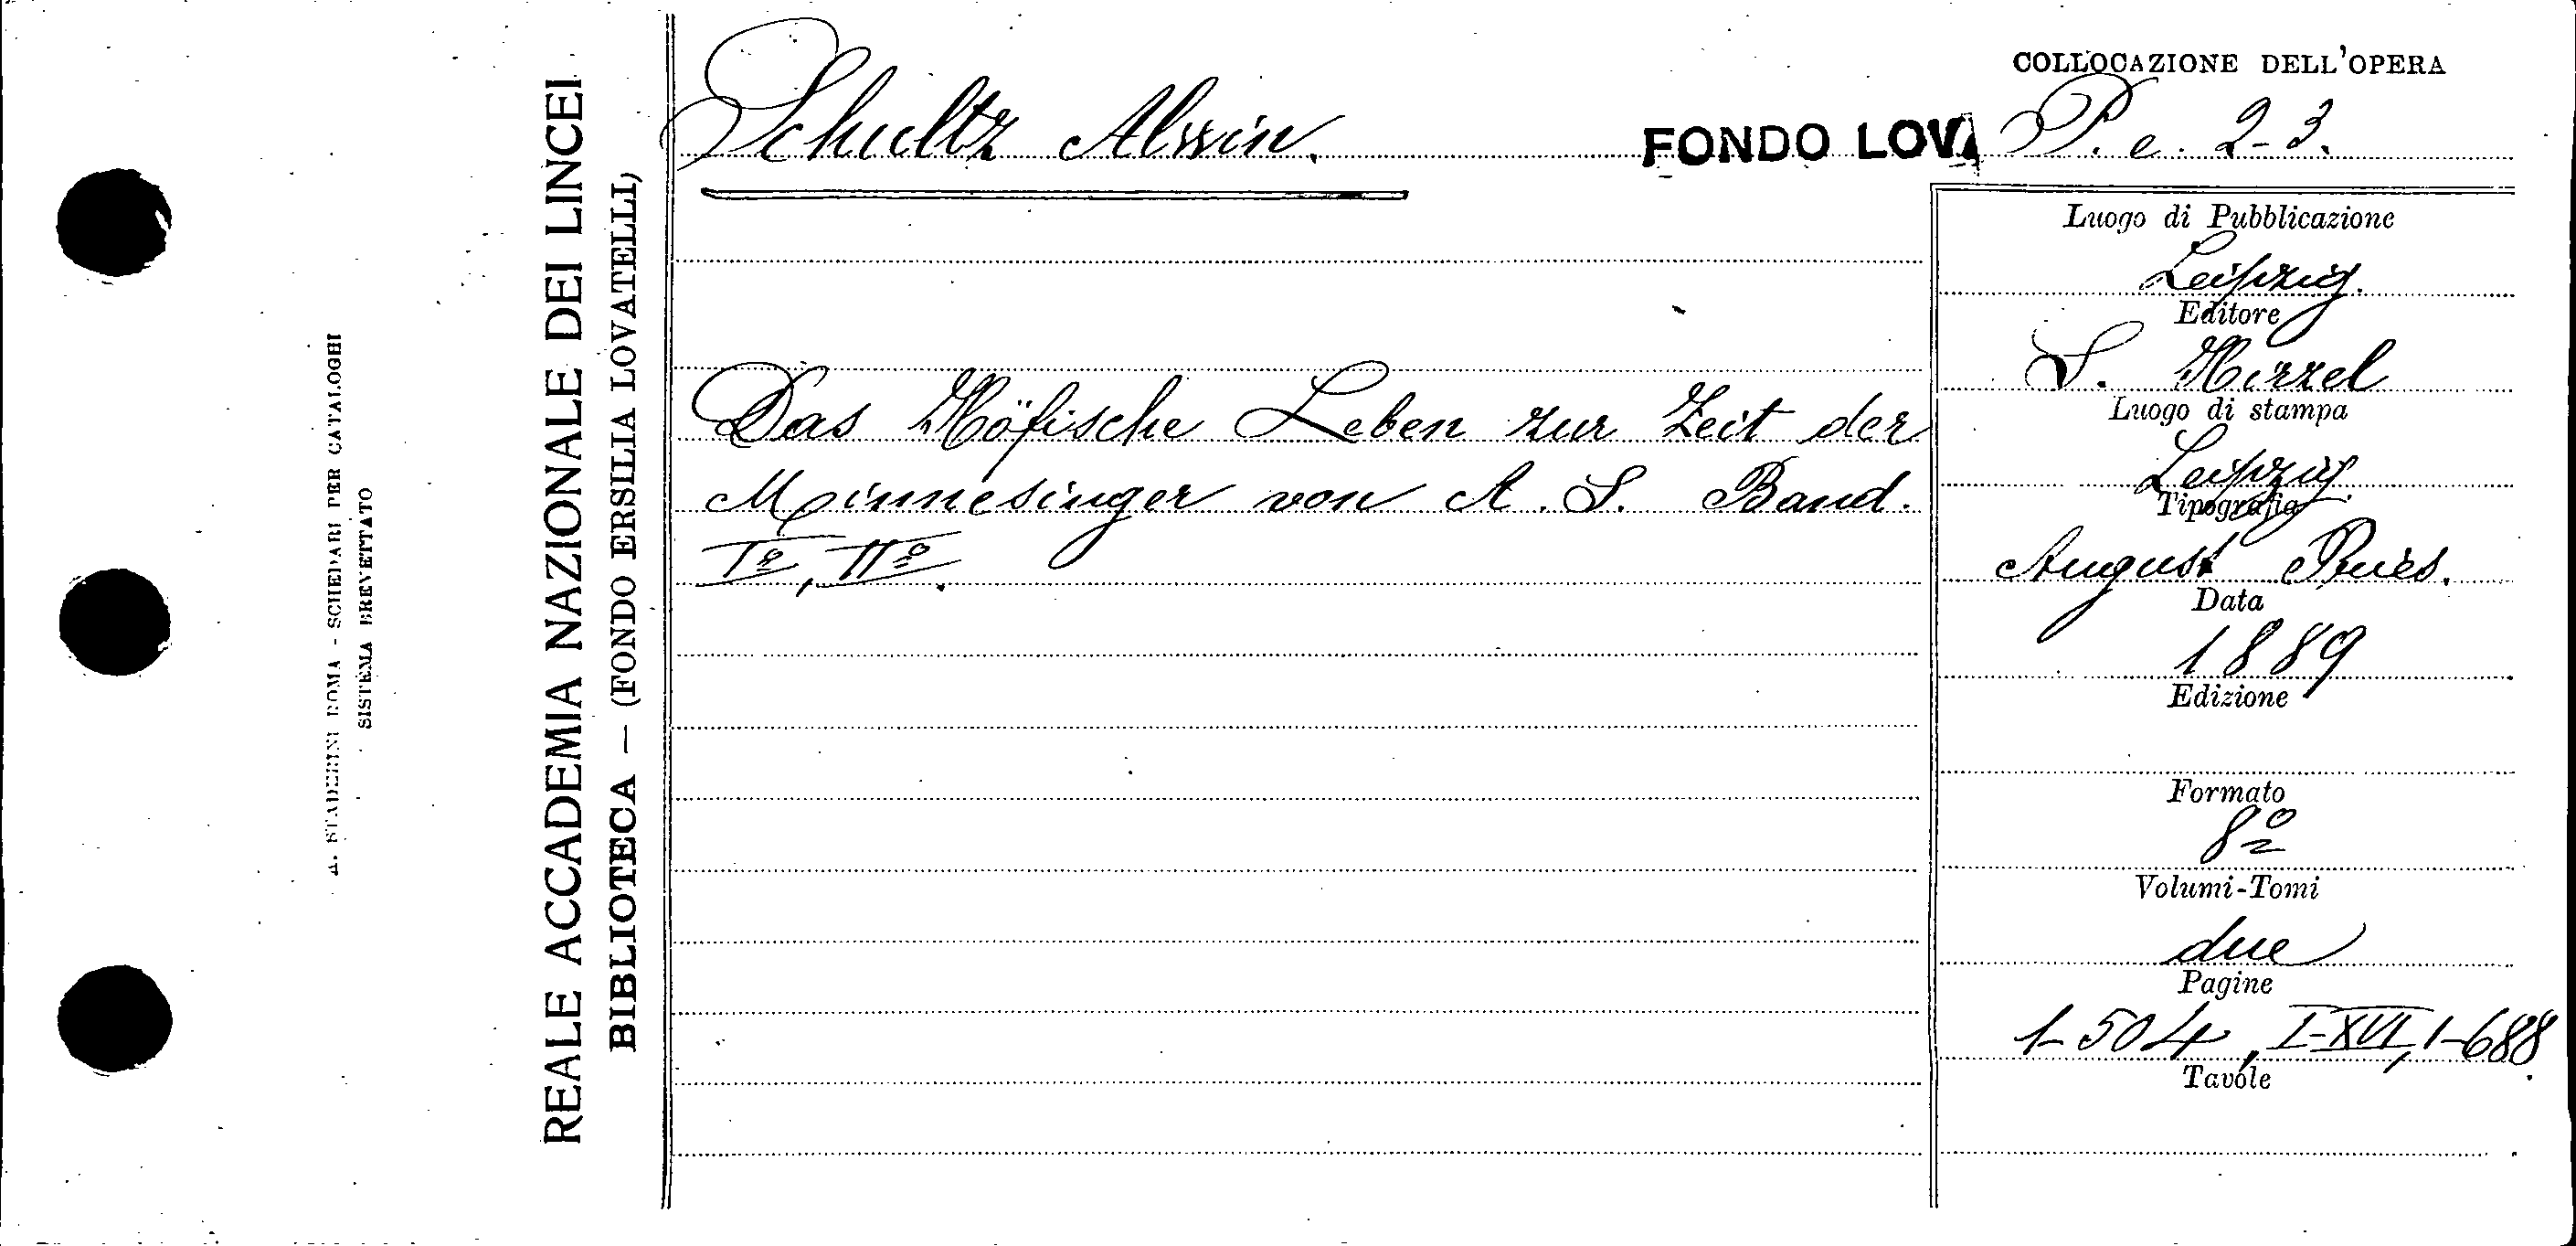 A. STADERINI ROMA - SCHEDARI PER CATALOGHI
SISTEMA BREVETTATO
REALE ACCADEMIA NAZIONALE DEI LINCEI
BIBLIOTECA — (FONDO ERSILIA LOVATELLI)
Schultz Alwin.
FONDO LOVA
COLLOCAZIONE DELL'OPERA
P. e. 2-3.
Das Höfische Leben zur Zeit der
Minnesinger von A. S. Band.
Iº, IIº.
Luogo di Pubblicazione
Leipzig.
Editore
S. Hirzel
Luogo di stampa
Leipzig
Tipografia
August Pries.
Data
1889
Edizione
Formato
8º
Volumi-Tomi
due
Pagine
1-504, I-XVI, 1-688
Tavole